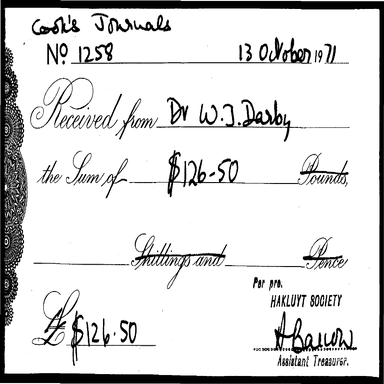 Cook's Journals
No 1258 13 October 1971
Received from Dr W. J. Darby
the Sum of $126-50 Pounds,
Shillings and Pence
Per pro.
HAKLUYT SOCIETY
£ $126.50
Assistant Treasurer.